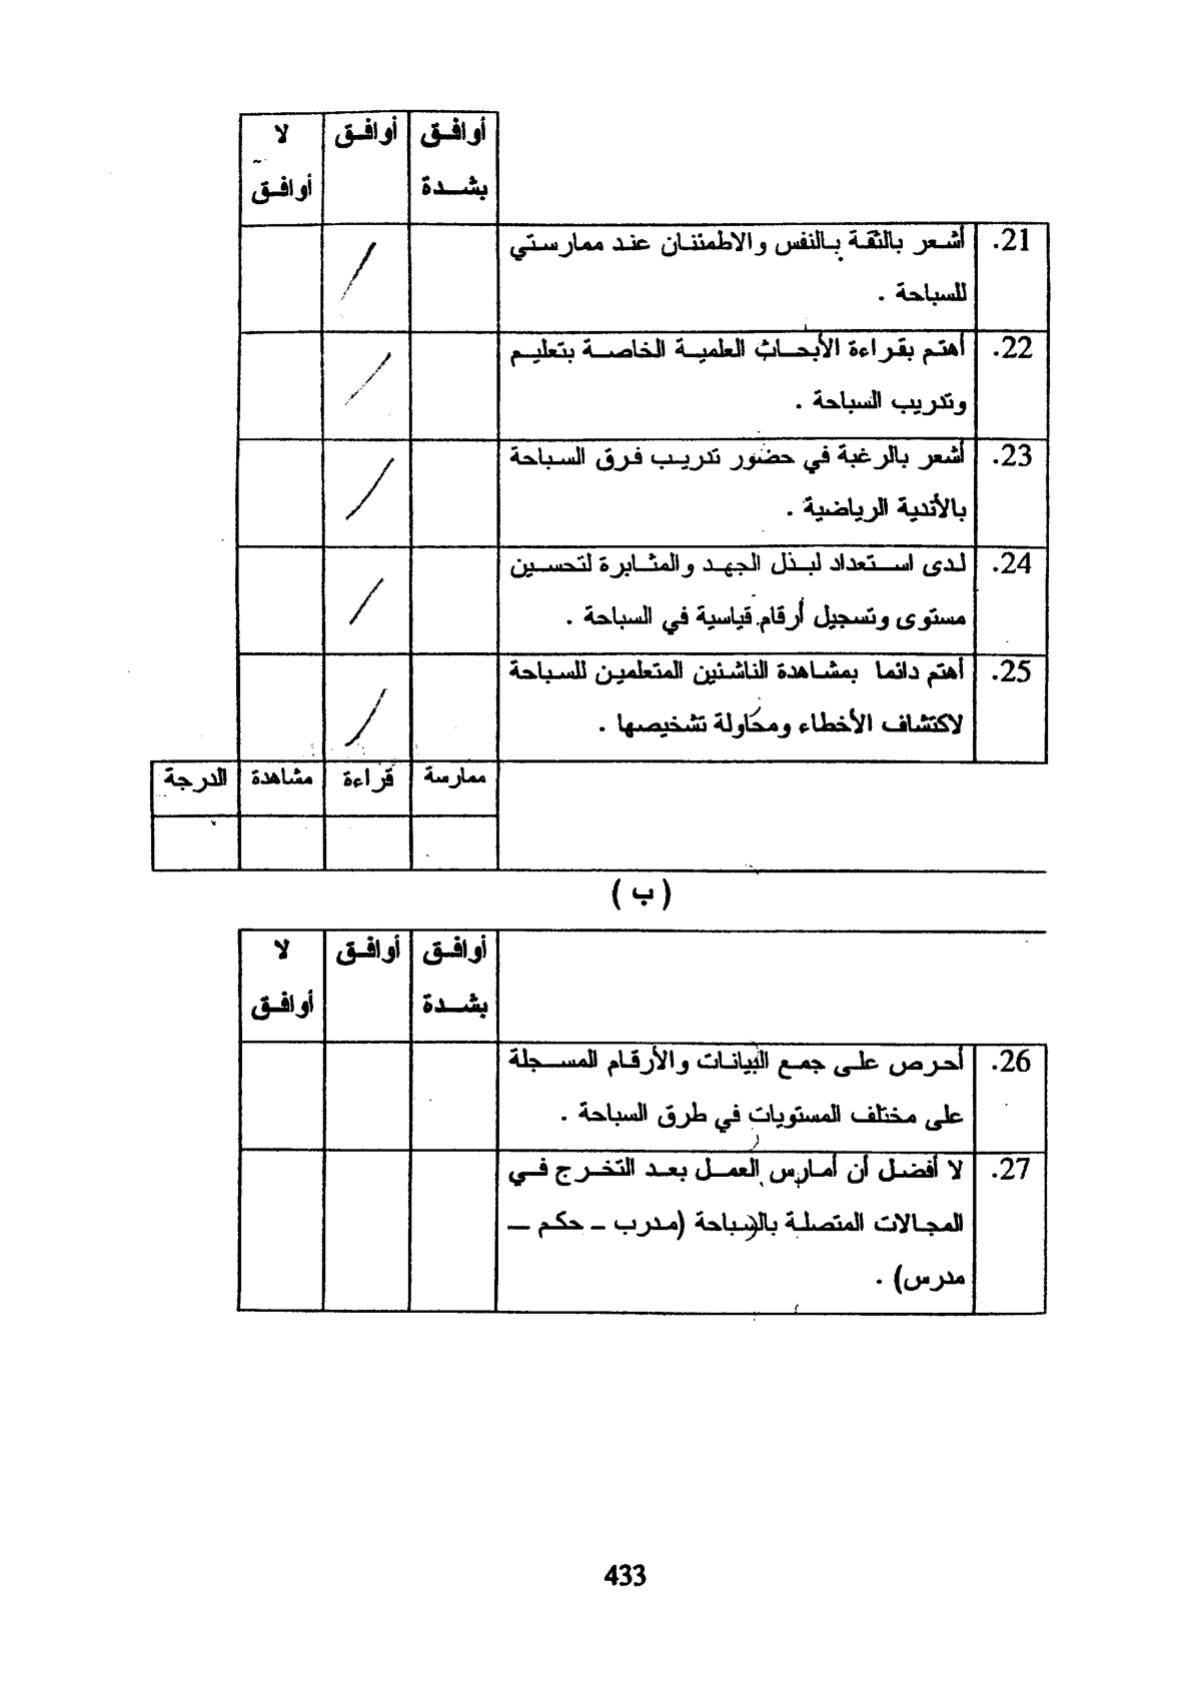 أوافق أوافق لا
بشدة أوافق
21. أشعر بالثقة بالنفس والاطمئنان عند ممارستي
للسباحة .
22. أهتم بقراءة الأبحاث العلمية الخاصة بتعليم
وتدريب السباحة .
23. أشعر بالرغبة في حضور تدريب فرق السباحة
بالأندية الرياضية .
24. لدى استعداد لبذل الجهد والمثابرة لتحسين
مستوى وتسجيل أرقام قياسية في السباحة .
25. أهتم دائما بمشاهدة الناشئين المتعلمين للسباحة
لاكتشاف الأخطاء ومحاولة تشخيصها .
ممارسة قراءة مشاهدة الدرجة
( ب )
أوافق أوافق لا
بشدة أوافق
26. أحرص على جمع البيانات والأرقام المسجلة
على مختلف المستويات في طرق السباحة .
27. لا أفضل أن أمارس العمل بعد التخرج في
المجالات المتصلة بالسباحة (مدرب – حكم –
مدرس) .
433